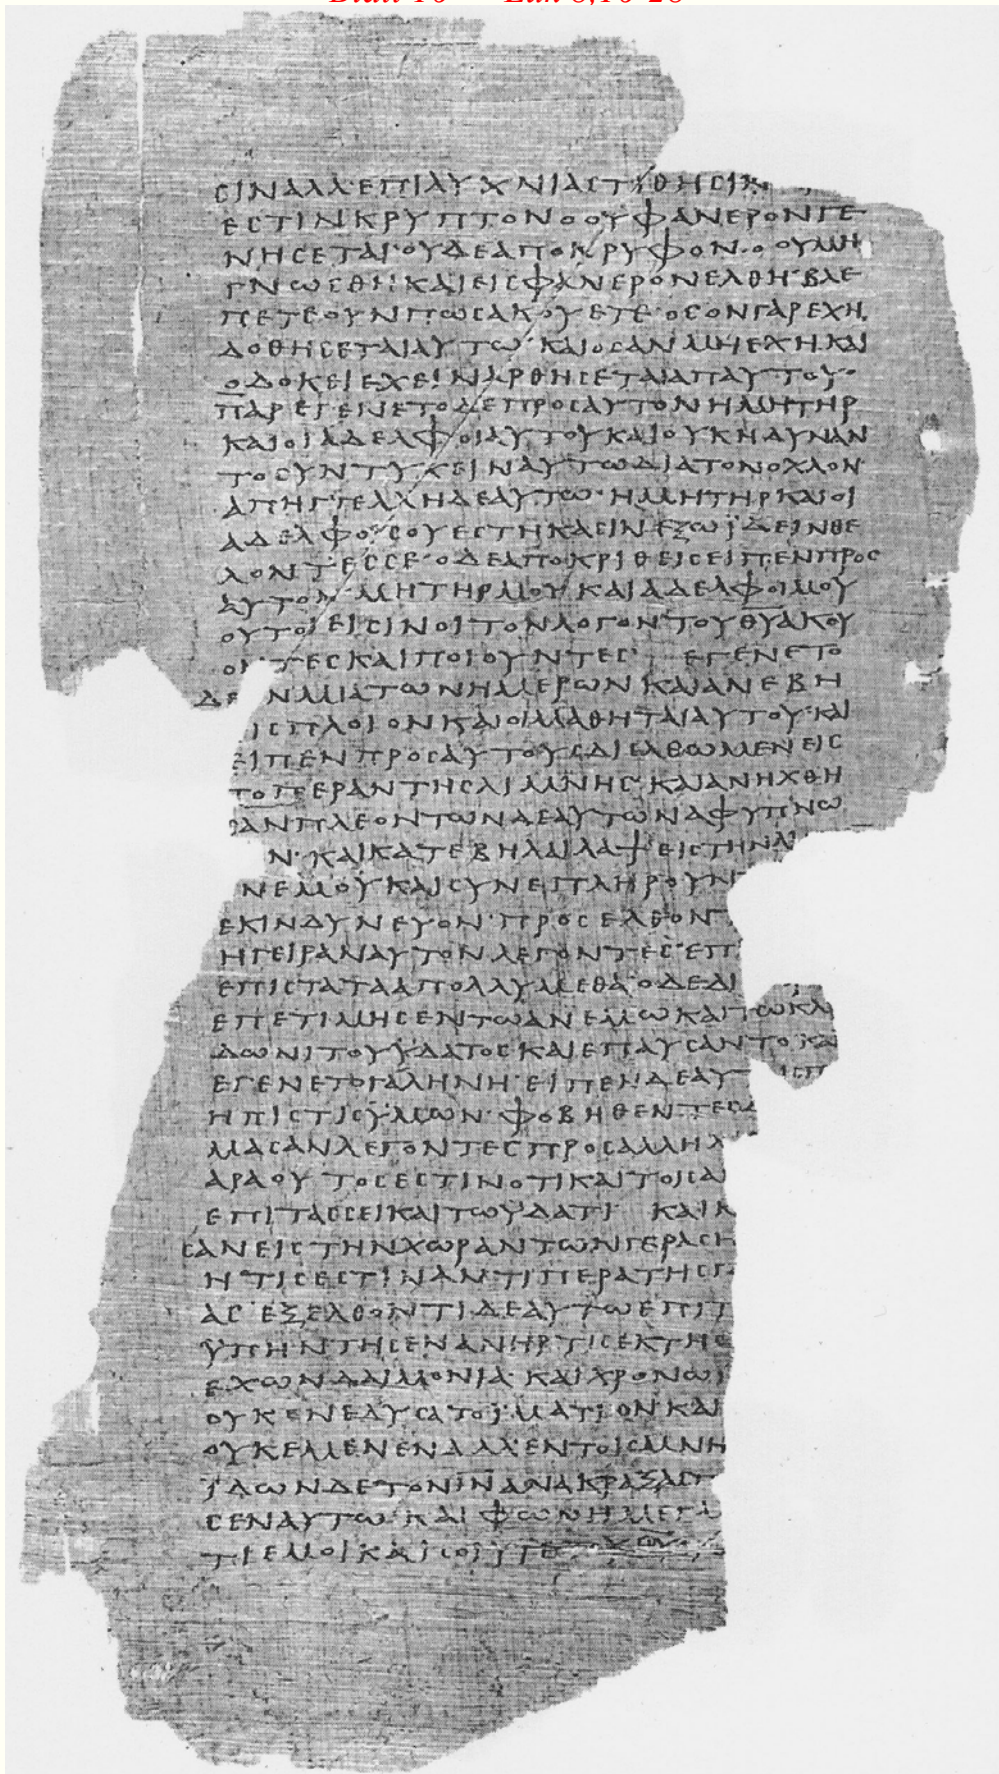 ΣΙΝΑΛΛΕΠΙΛΥΧΝΙΑΣΤΙΘΗΣΙΝ
ΕΣΤΙΝΚΡΥΠΤΟΝΟΟΥΦΑΝΕΡΟΝΓΕ
ΝΗΣΕΤΑΙ·ΟΥΔΕΑΠΟΚΡΥΦΟΝ·ΟΟΥΜΗ
ΓΝΩΣΘΗ·ΚΑΙΕΙΣΦΑΝΕΡΟΝΕΛΘΗ·ΒΛΕ
ΠΕΤΕΟΥΝΠΩΣΑΚΟΥΕΤΕ·ΟΣΟΝΓΑΡΕΧΗ
ΔΟΘΗΣΕΤΑΙΑΥΤΩ·ΚΑΙΟΣΑΝΜΗΕΧΗ·ΚΑΙ
ΟΔΟΚΕΙΕΧΕΙΝΑΡΘΗΣΕΤΑΙΑΠΑΥΤΟΥ·
ΠΑΡΕΓΕΝΕΤΟΔΕΠΡΟΣΑΥΤΟΝΗΜΗΤΗΡ
ΚΑΙΟΙΑΔΕΛΦΟΙΑΥΤΟΥΚΑΙΟΥΚΗΔΥΝΑΝ
ΤΟΣΥΝΤΥΧΕΙΝΑΥΤΩΔΙΑΤΟΝΟΧΛΟΝ·
ΑΠΗΓΓΕΛΛΗΔΕΑΥΤΩ·ΗΜΗΤΗΡΚΑΙΟΙ
ΑΔΕΛΦΟΙΣΟΥΕΣΤΗΚΑΣΙΝΕΞΩΪΔΕΙΝΘΕ
ΛΟΝΤΕΣΣΕ·ΟΔΕΑΠΟΚΡΙΘΕΙΣΕΙΠΕΝΠΡΟΣ
ΑΥΤΟΝ·ΜΗΤΗΡΜΟΥΚΑΙΑΔΕΛΦΟΙΜΟΥ
ΟΥΤΟΙΕΙΣΙΝΟΙΤΟΝΛΟΓΟΝΤΟΥΘΥΑΚΟΥ
ΟΝΤΕΣΚΑΙΠΟΙΟΥΝΤΕΣ· ΕΓΕΝΕΤΟ
ΔΕ ΝΜΙΑΤΩΝΗΜΕΡΩΝΚΑΙΑΝΕΒΗ
ΙΣΠΛΟΙΟΝΚΑΙΟΙΜΑΘΗΤΑΙΑΥΤΟΥ·ΚΑΙ
ΕΙΠΕΝΠΡΟΣΑΥΤΟΥΣΔΙΕΛΘΩΜΕΝΕΙΣ
ΤΟΠΕΡΑΝΤΗΣΛΙΜΝΗΣ·ΚΑΙΑΝΗΧΘΗ
ΑΝΠΛΕΟΝΤΩΝΔΕΑΥΤΩΝΑΦΥΠΝΩ
Ν·ΚΑΙΚΑΤΕΒΗΛΑΙΛΑΨΕΙΣΤΗΝΛΙ
ΝΕΜΟΥΚΑΙΣΥΝΕΠΛΗΡΟΥΝ
ΕΚΙΝΔΥΝΕΥΟΝ·ΠΡΟΣΕΛΘΟΝ
ΗΓΕΙΡΑΝΑΥΤΟΝΛΕΓΟΝΤΕΣ·ΕΠ
ΕΠΙΣΤΑΤΑΑΠΟΛΛΥΜΕΘΑ·ΟΔΕΔΙ
ΕΠΕΤΙΜΗΣΕΝΤΩΑΝΕΜΩΚΑΙΤΩΚΛΥ
ΔΩΝΙΤΟΥΫΔΑΤΟΣΚΑΙΕΠΑΥΣΑΝΤΟ·ΚΑΙ
ΕΓΕΝΕΤΟΓΑΛΗΝΗ·ΕΙΠΕΝΔΕΑΥΤ ΙΣΠ
ΗΠΙΣΤΙΣΫΜΩΝ·ΦΟΒΗΘΕΝΤΕΣΔ
ΜΑΣΑΝΛΕΓΟΝΤΕΣΠΡΟΣΑΛΛΗΛ
ΑΡΑΟΥΤΟΣΕΣΤΙΝΟΤΙΚΑΙΤΟΙΣΑ
ΕΠΙΤΑΣΣΕΙΚΑΙΤΩΫΔΑΤΙ ΚΑΙΚ
ΣΑΝΕΙΣΤΗΝΧΩΡΑΝΤΩΝΓΕΡΑΣΗ
ΗΤΙΣΕΣΤΙΝΑΝΤΙΠΕΡΑΤΗΣΓ
ΑΣ·ΕΞΕΛΘΟΝΤΙΔΕΑΥΤΩΕΠΙΤ
ΫΠΗΝΤΗΣΕΝΑΝΗΡΤΙΣΕΚΤΗΣ
ΕΧΩΝΔΑΙΜΟΝΙΑ·ΚΑΙΧΡΟΝΩΙ
ΟΥΚΕΝΕΔΥΣΑΤΟΪΜΑΤΙΟΝΚΑΙ
ΟΥΚΕΜΕΝΕΝΑΛΛΕΝΤΟΙΣΜΝΗ
ΪΔΩΝΔΕΤΟΝΙΝΑΝΑΚΡΑΞΑΣΠ
ΣΕΝΑΥΤΩ·ΚΑΙΦΩΝΗΜΕΓΑ
ΤΙΕΜΟΙΚΑΙΣΟΙ